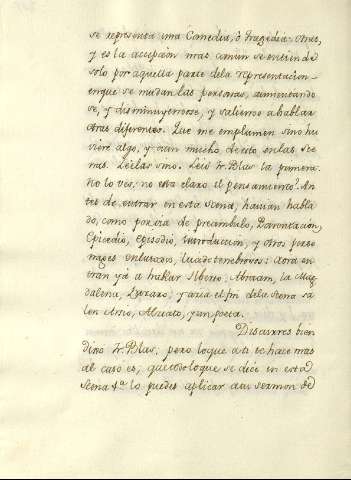 se representa una Comedia, ô tragedia: otras,
y es la accepcion mas comun se entiende
solo por aquella parte dela representacion
enque se mudan las personas, aumentando
se, y disminuyendose, y saliendo a hablar
otras diferentes. Que me emplumen sino hu
viere algo, y aun mucho de esto enlas Sce
nas. Leelas sino. Leió Fr. Blas la primera.
No lo ves; no está claro el pensamiento? An
tes de entrar en esta Scena, havian habla
do, como por via de preambulo,
Epicedio, episodio, introduccion, y otros perso
nages enlutados, tenebrosos: aora en
tran yá a hablar Siberio, Abraam, la Mag
dalena, Lazaro; y acia el fin dela Scena sa
len Atilio, Alciato, y un poeta.
Discurres bien
dixo Fr. Blas; pero loque a ti te hace mas
al caso es, que todo loque se dice en esta
Scena 1.ª lo puedes aplicar atu sermon de